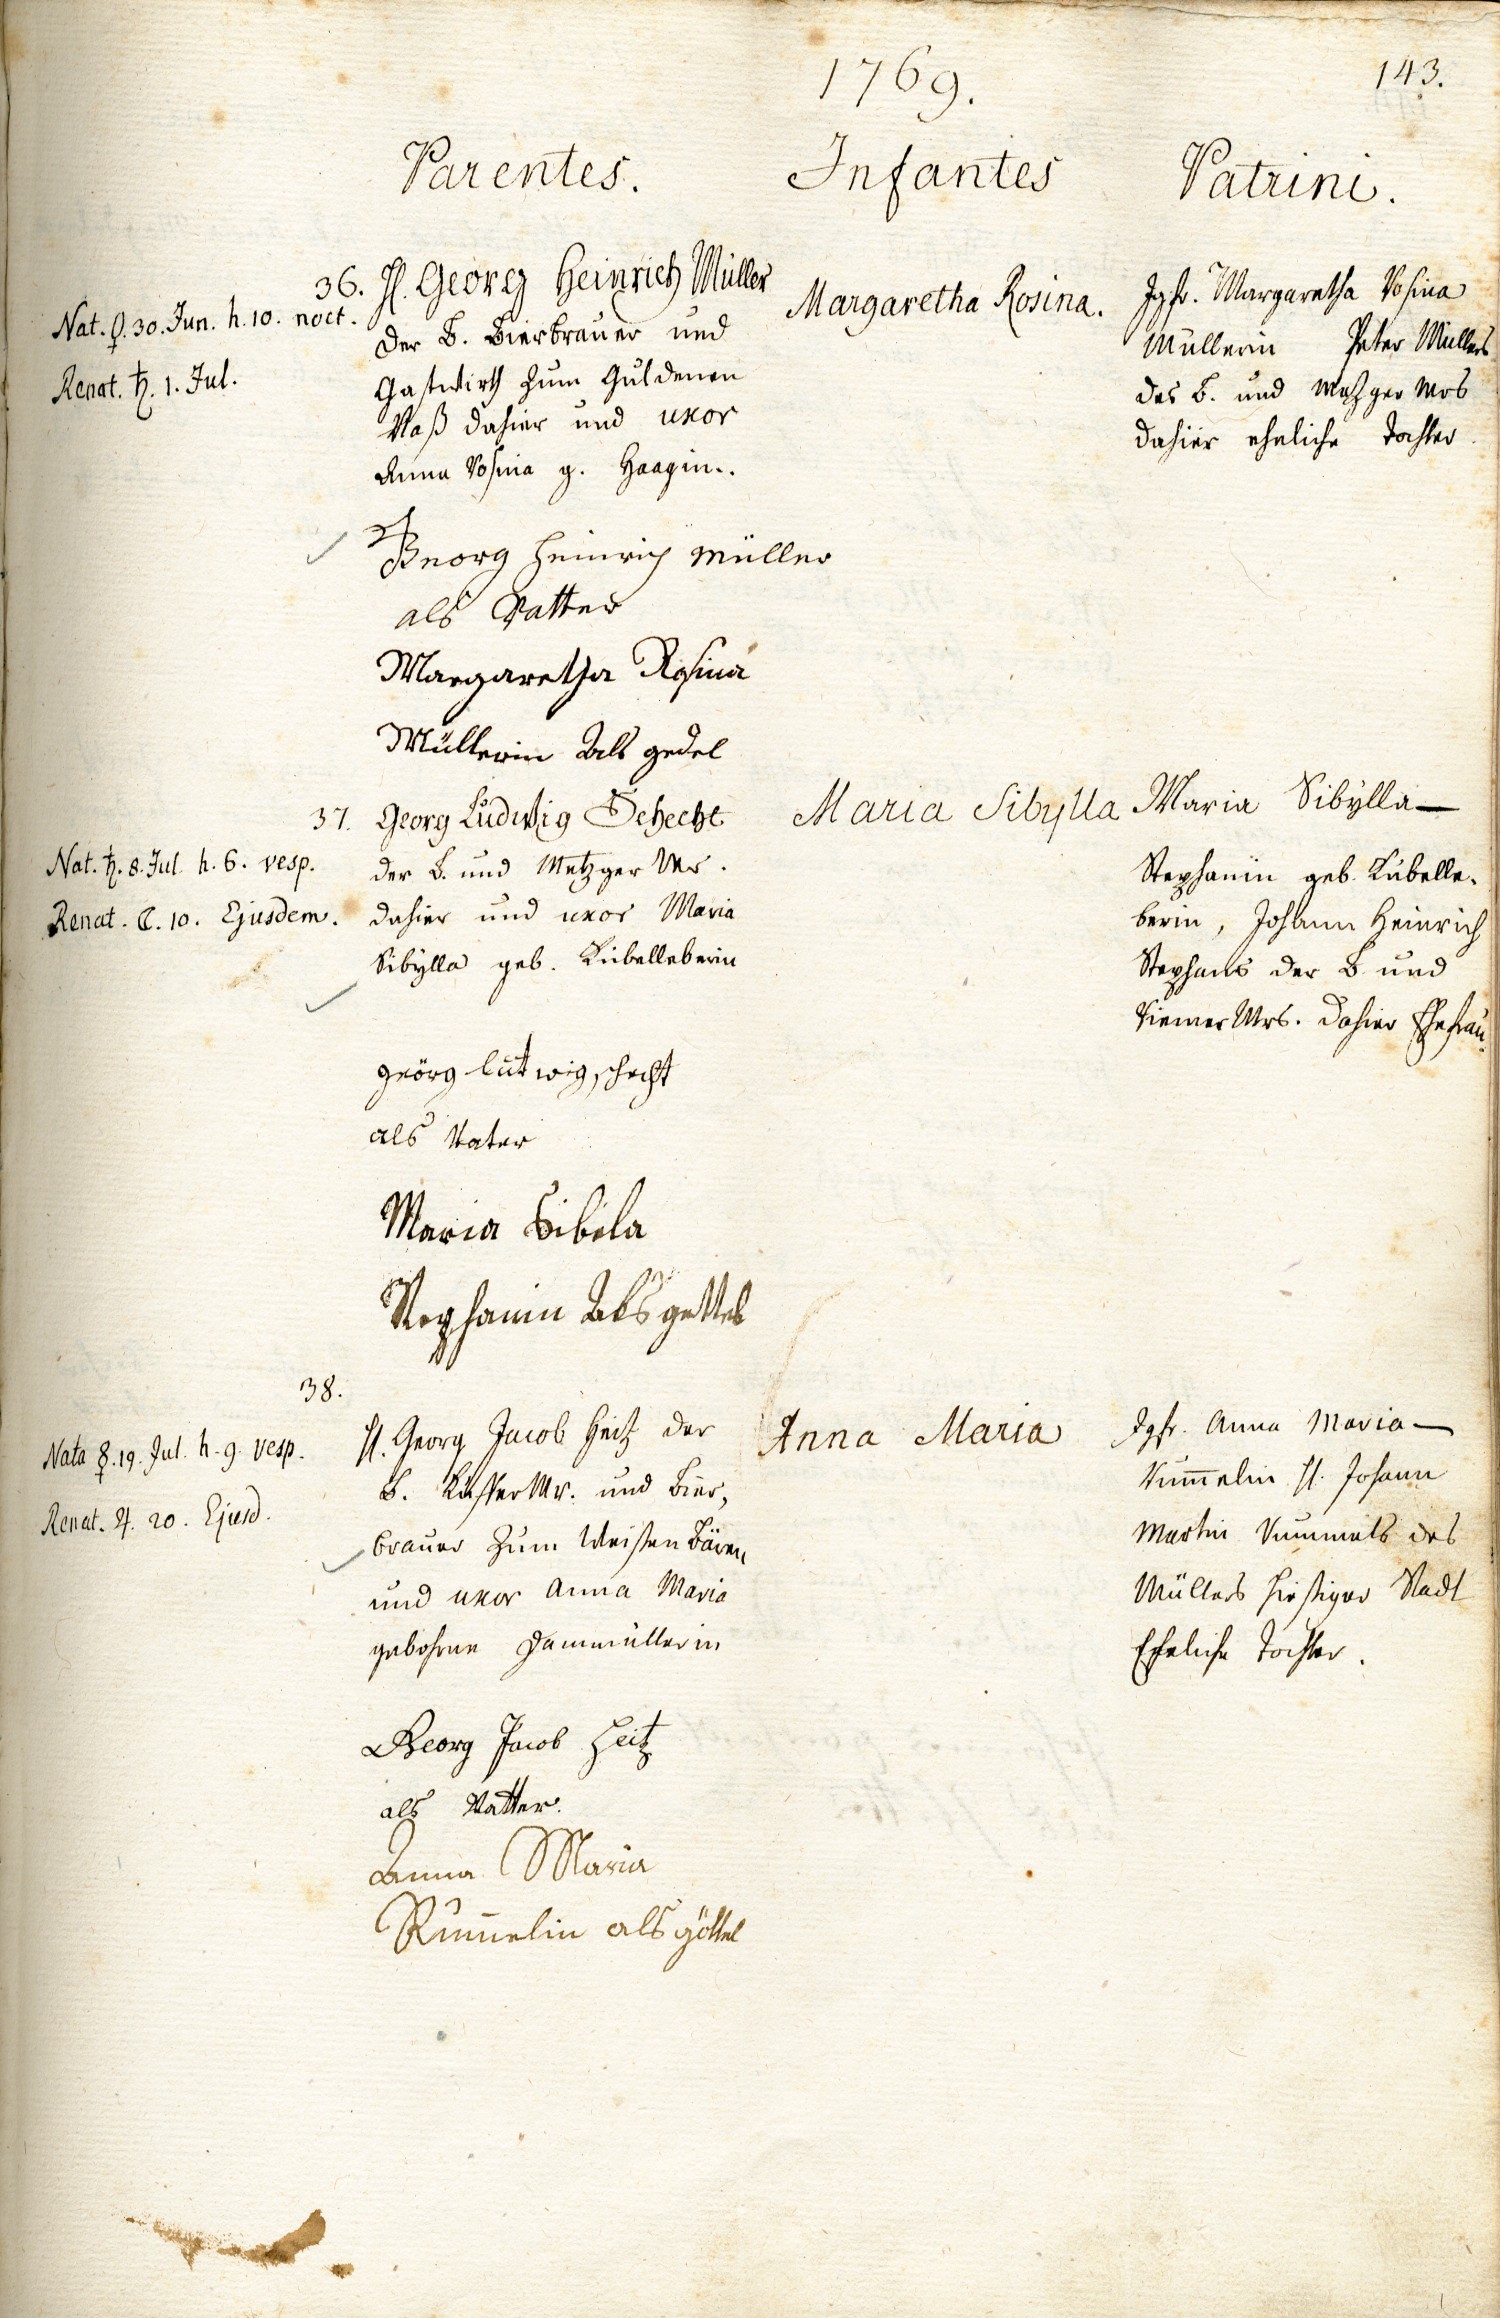 1769.
143.
Parentes.
Infantes
Patrini.
36.
Nat. ♀. 30. Jun. h. 10. noct.
Renat. ♄. 1. Jul.
H. Georg Heinrich Müller
der B. Bierbrauer und
Gastwirth zum Guldenen
Roß dahier und uxor
Anna Rosina g. Haagin.
Georg Heinrich Müller
als Vatter
Margaretha Rosina
Müllerin Als gedel
Margaretha Rosina.
Jgfr. Margaretha Rosina
Müllerin Peter Müllers
des B. und Mezger Mrs
dahier eheliche Tochter.
37.
Nat. ♄. 8. Jul. h. 6. vesp.
Renat. ☾. 10. Ejusdem.
Georg Ludwig Schecht
der B. und Metzger Mr.
dahier und uxor Maria
Sibylla geb. Kübelleberin
geörg lutwig schecht
als Vater
Maria Sibela
Stephanin Als gettel
Maria Sibylla
Maria Sibylla
Stephanin geb. Kübelle-
berin, Johann Heinrich
Stephans der B. und
Riemer Mrs. dahier Ehefrau.
38.
Nata ☿. 19. Jul. h. 9. vesp.
Renat. ♃. 20. Ejusd.
H. Georg Jacob Heitz der
B. Küffer Mr. und Bier-
brauer zum Weissen Bären
und uxor Anna Maria
gebohrne Dammüllerin
Georg Jacob Heitz
als Vatter.
Anna Maria
Rum̄elin als göttel
Anna Maria
Jgfr. Anna Maria
Rum̄elin H. Johann
Martin Rummels des
Müllers hiesiger Stadt
Eheliche Tochter.